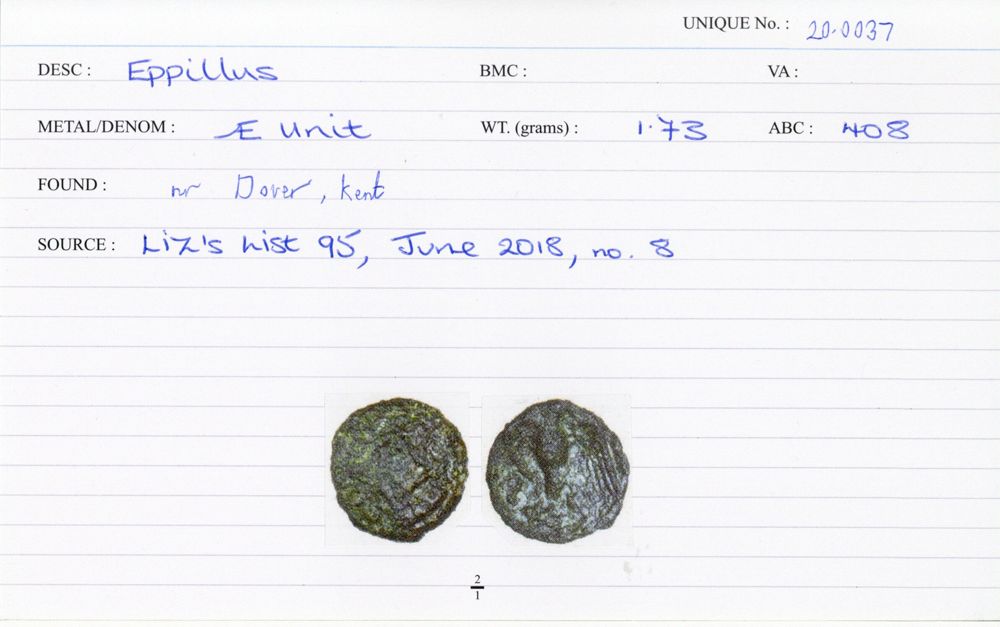 UNIQUE No. : 20.0037
DESC : Eppillus BMC : VA :
METAL/DENOM : Æ Unit WT. (grams) : 1.73 ABC : 408
FOUND : nr Dover, Kent
SOURCE : Liz's List 95, June 2018, no. 8
2
1